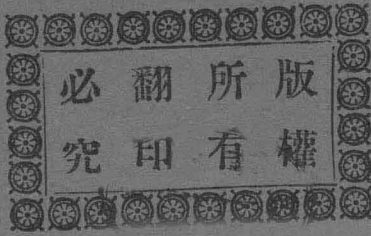 版權
所有
翻印
必究